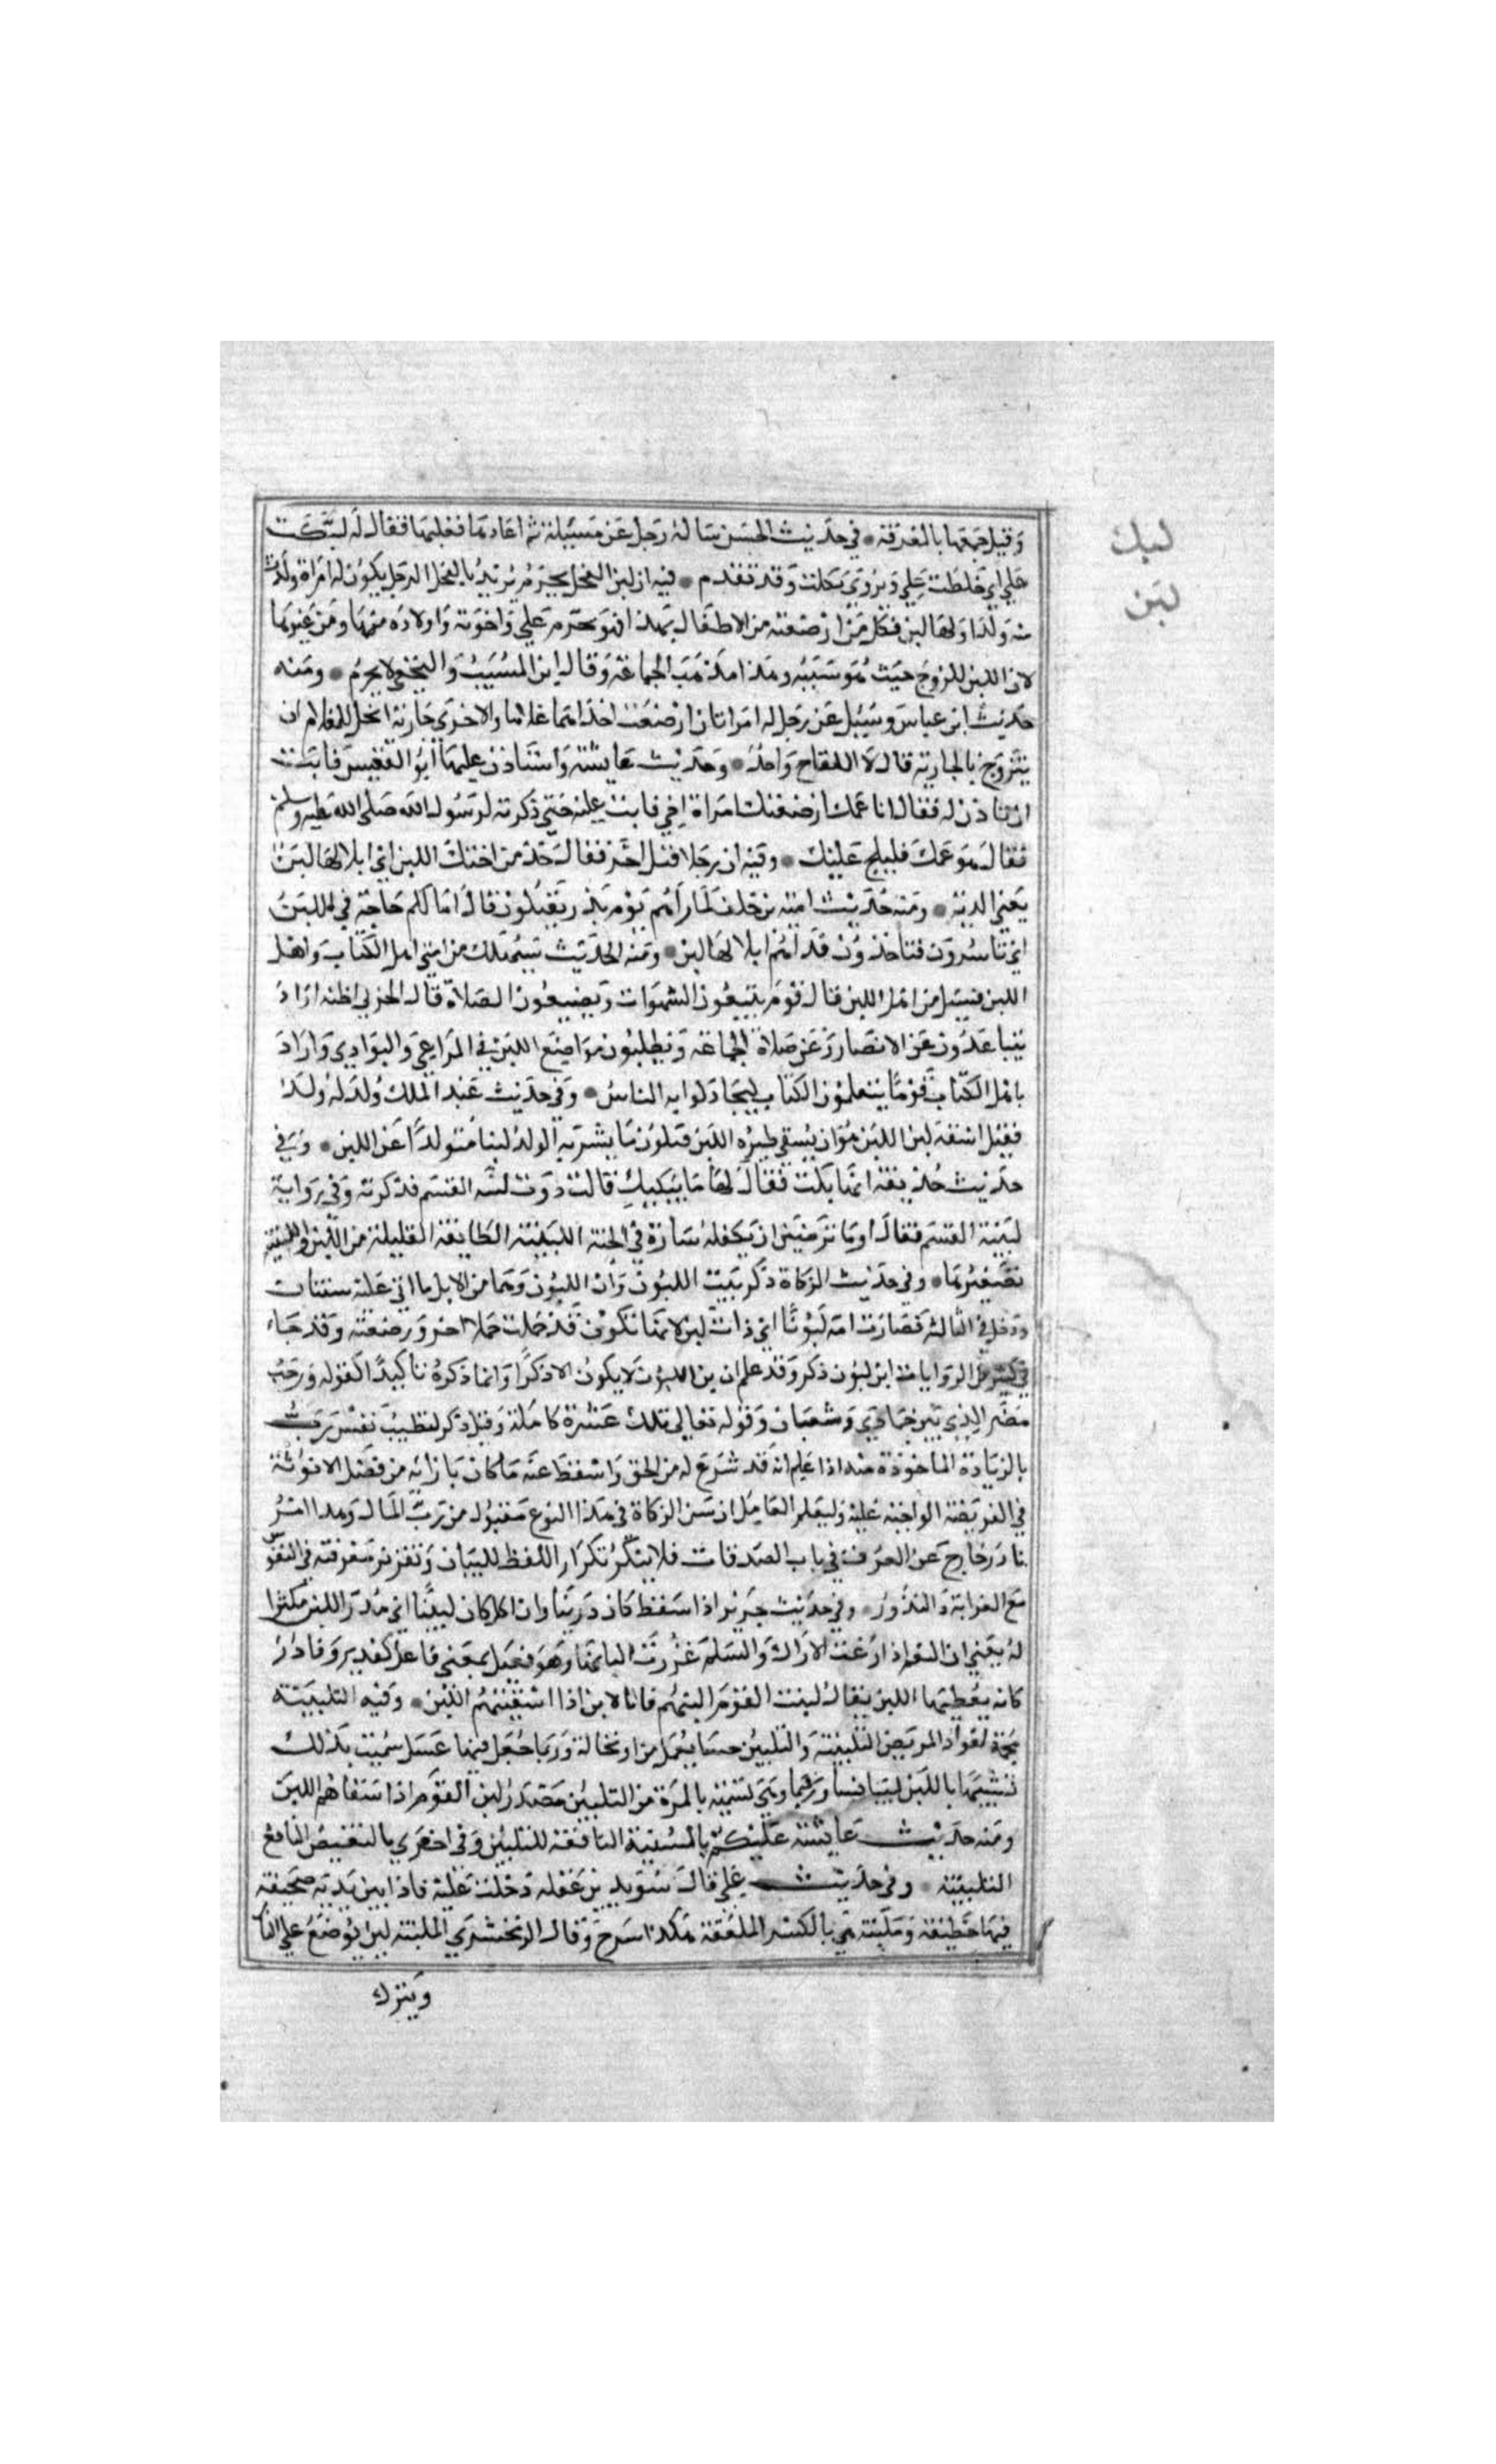 لبك
لبن
وقيل جمعها بالمغرفة • في حديث الحسن ساله رجل عن مسيلة ثم اعادها فقلبها فقال له لبكت
علي اي خلطت علي ويروي بكلت وقد تقدم • فيه ان لبن الفحل يحرم يريد بالفحل الرجل يكون له امراة ولدت
منه ولدا ولها لبن فكل من ارضعته من الاطفال بهذا فهو محرم علي واخوته واولاده منها ومن غيرها
لان اللبن للزوج حيث هو سببه وهذا مذهب الجماعة وقال ابن المسيب والنخعي لا يحرم • ومنه
حديث ابن عباس وسيل عن رجل له امراتان ارضعت احداهما غلاما والاخري جارية ايحل للغلام ان
يتزوج بالجارية قال لا اللقاح واحد • وحديث عايشة واستاذن عليها ابو القعيس فابت
ان تاذن له فقال انا عمك ارضعتك امراة اخي فابت عليه حتي ذكرته لرسول الله صلي الله عليه وسلم
فقال هو عمك فليلج عليك • وفيه ان رجلا قتل اخر فقال خذ من اخيك اللبن اي ابلا لها لبن
يعني الدية • ومنه حديث امية بن خلف لما راهم يوم بدر يقتلون قال اما لكم حاجة في اللبن
اي تاسرون فتاخذون فداهم ابلا لها لبن • ومنه الحديث سيهلك من امتي اهل الكتاب واهل
اللبن فسيل من اهل اللبن قال قوم يتبعون الشهوات ويضيعون الصلاة قال الحربي اظنه اراد
يتباعدون عن الامصار وعن صلاة الجماعة ويطلبون مواضع اللبن في المراعي والبوادي واراد
باهل الكتاب قوما يتعلمون الكتاب ليجادلوا به الناس • وفي حديث عبد الملك ولد له ولد
فقيل اسقه لبن اللبن هو ان يسقي ظيره اللبن فيكون ما يشربه الولد لبنا متولدا عن اللبن • وفي
حديث خديجة انها بكت فقال لها ما يبكيك قالت درت لبنة القسم فذكرته وفي رواية
لبينة القسم فقال اوما ترضين ان تكفله سارة في الجنة اللبنة الطايفة القليلة من اللبن واللبينة
تصغيرها • وفي حديث الزكاة ذكر بنت اللبون وابن اللبون وهما من الابل ما اتي عليه سنتان
ودخل في الثالثة فصارت امه لبونا اي ذات لبن لانها تكون قد حملت حملا اخر ووضعته وقد جاء
في كثير من الروايات ابن لبون ذكر وقد علم ان ابن اللبون لا يكون الا ذكرا وانما ذكره تاكيدا كقوله ورجب
مضر الذي بين جمادي وشعبان وقوله تعالي تلك عشرة كاملة وقيل ذكر لتطييب نفس رب
بالزيادة الماخوذة منه اذا علم انه قد شرع له من الحق واسقط عنه ما كان بازايه من فضل الانوثة
في الفريضة الواجبة عليه وليعلم العامل ان سن الزكاة في هذا النوع مقبول من رب المال وهذا امر
نادر خارج عن العرف في باب الصدقات فلا ينكر تكرار اللفظ للبيان وتقرير معرفته في النفوس
مع الغرابة والندور • وفي حديث جرير اذا سقط كان درينا وان اكل كان لبينا اي مدر اللبن مكثرا
له يعني ان النعم اذا رعت الاراك والسلم غزرت البانها وهو فعيل بمعني فاعل كقدير وقادر
كانه يعطيها اللبن يقال لبنت القوم البنهم فانا لابن اذا اسقيتهم اللبن • وفيه التلبينة
مجمة لفواد المريض التلبينة والتلبين حسا يعمل من او نخالة وربما جعل فيها عسل سميت بذلك
تشبيها باللبن لبياضها ورقتها وهي تسمية بالمرة من التلبين مصدر لبن القوم اذا سقاهم اللبن
ومنه حديث عايشة عليكم بالمشنية النافعة للتلبين وفي اخري بالبغيض النافع
التلبينة • وفي حديث علي قال سويد بن غفلة دخلت عليه فاذا بين يديه صحيفة
فيها خطيفة وملبنة هي بالكسر الملعقة هكذا شرح وقال الزمخشري الملبنة لبن يوضع علي النار
وينزل